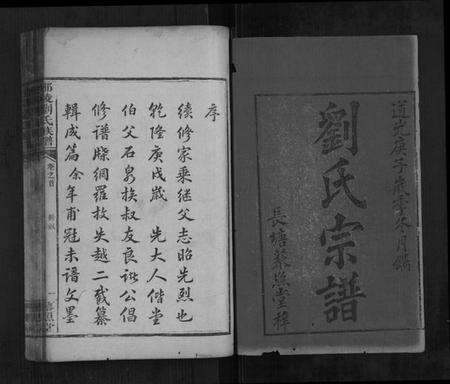 道光庚子歲季冬月鐫
劉氏宗譜
長塘藜照堂梓
序
續修家乘繼父志昭先烈也
乾隆庚戌歲 先大人偕堂
伯父石泉族叔友良諸公倡
修譜牒網羅放失越二載纂
輯成篇余年甫冠未諳文墨
劉氏族譜
卷之首
新敘
一